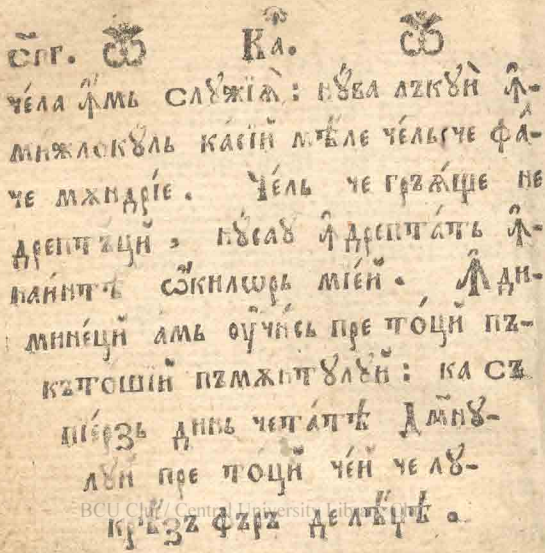 с҃пг. Ѿ Ка҃. Ѿ
че́ла ꙟ҆́мь слꙋжіѧ̀: нꙋ́ва лъкꙋѝ ꙟ҆-
мижлокꙋль ка́сїй мѣ́ле че́льсче фа́-
че мѫндріе. Че́ль че гръѧ́ще не
дрептъ́цй, нꙋ́саꙋ ꙟ҆дрепта́ть ꙟ҆-
наи́нтѣ ѡ҆́килѡрь міе́й. Ꙟди-
мине́цй амь оу҆чи́сь пре то́цй пъ-
кътошїй пъмѫнтꙋлꙋй: ка съ
піе́рзь динь чета́тѣ Дм҃нꙋ-
лꙋй пре то́цй че́й че лꙋ-
крѣ́зъ фъръ де лѣ́ꙋе.
BCU Cluj / Central University Library Cluj